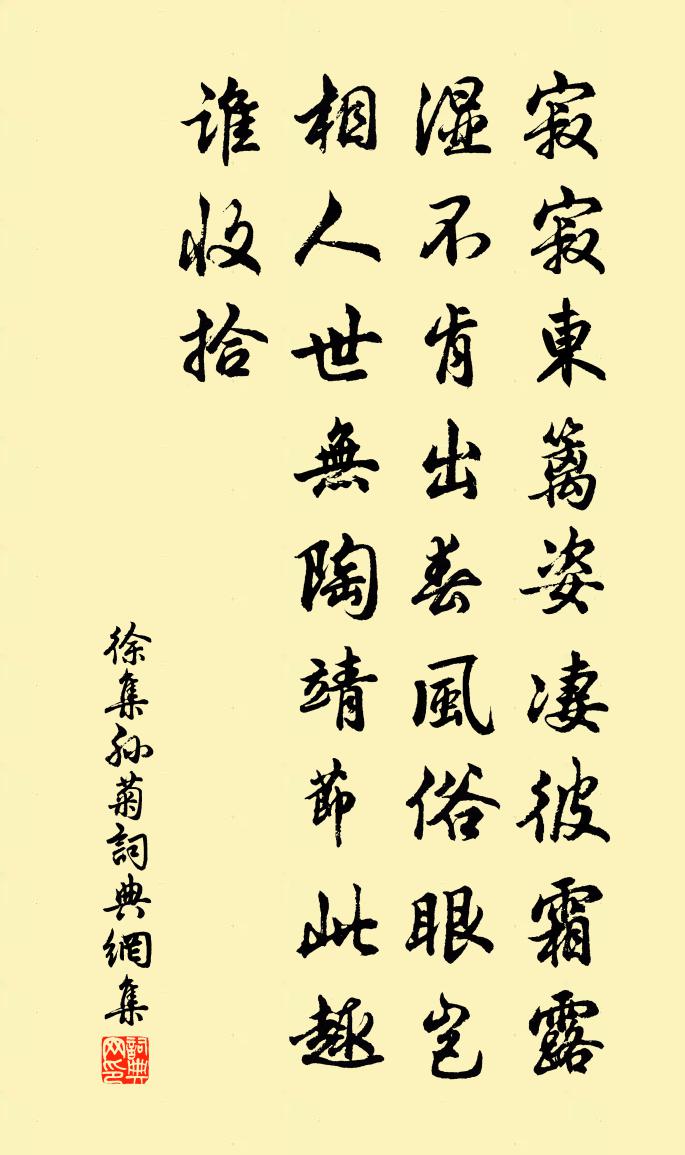 寂寂東篱姿凄彼霜露
湿不肯出春風俗眼岂
相人世無陶靖節此趣
誰收拾
徐集孙菊詞典網集
詞典
网印